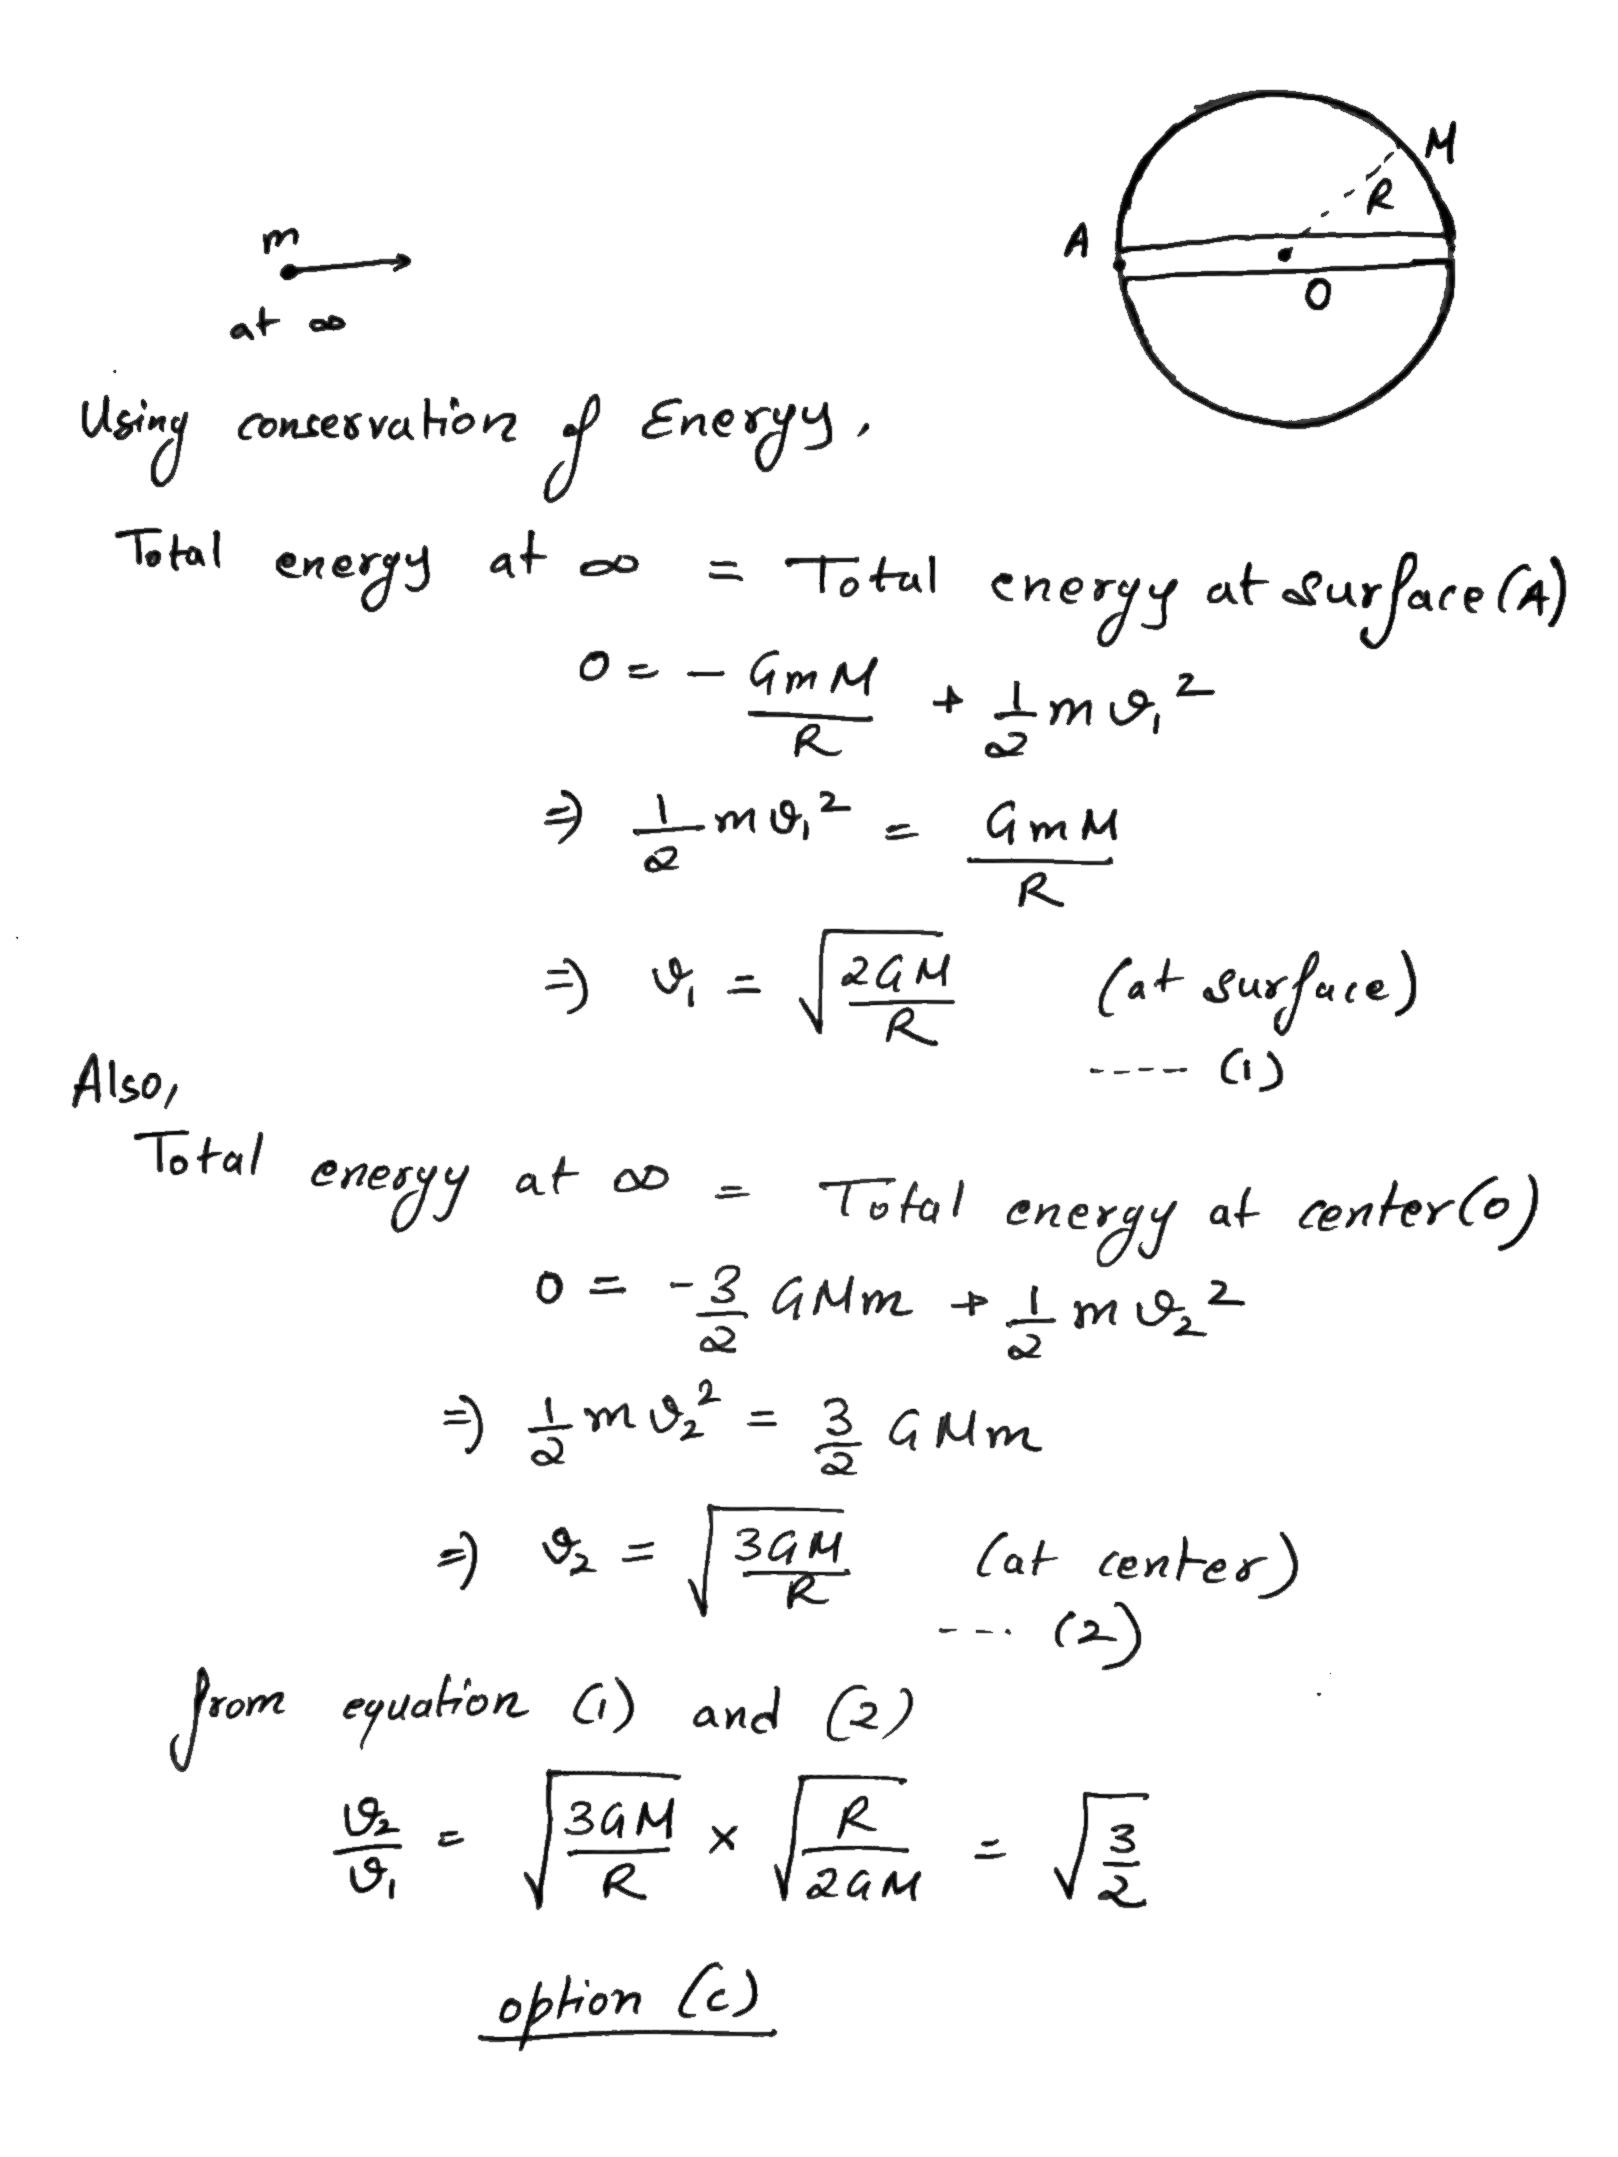 M
R
A
O
m
at ∞
Using conservation of Energy,
Total energy at ∞ = Total energy at surface (A)
0 = - GmM/R + 1/2 m v₁²
⇒ 1/2 m v₁² = GmM/R
⇒ v₁ = √(2GM/R) (at surface)
---- (1)
Also,
Total energy at ∞ = Total energy at center (O)
0 = -3/2 GMm + 1/2 m v₂²
⇒ 1/2 m v₂² = 3/2 GMm
⇒ v₂ = √(3GM/R) (at center)
--- (2)
from equation (1) and (2)
v₂/v₁ = √(3GM/R) × √(R/2GM) = √(3/2)
option (c)